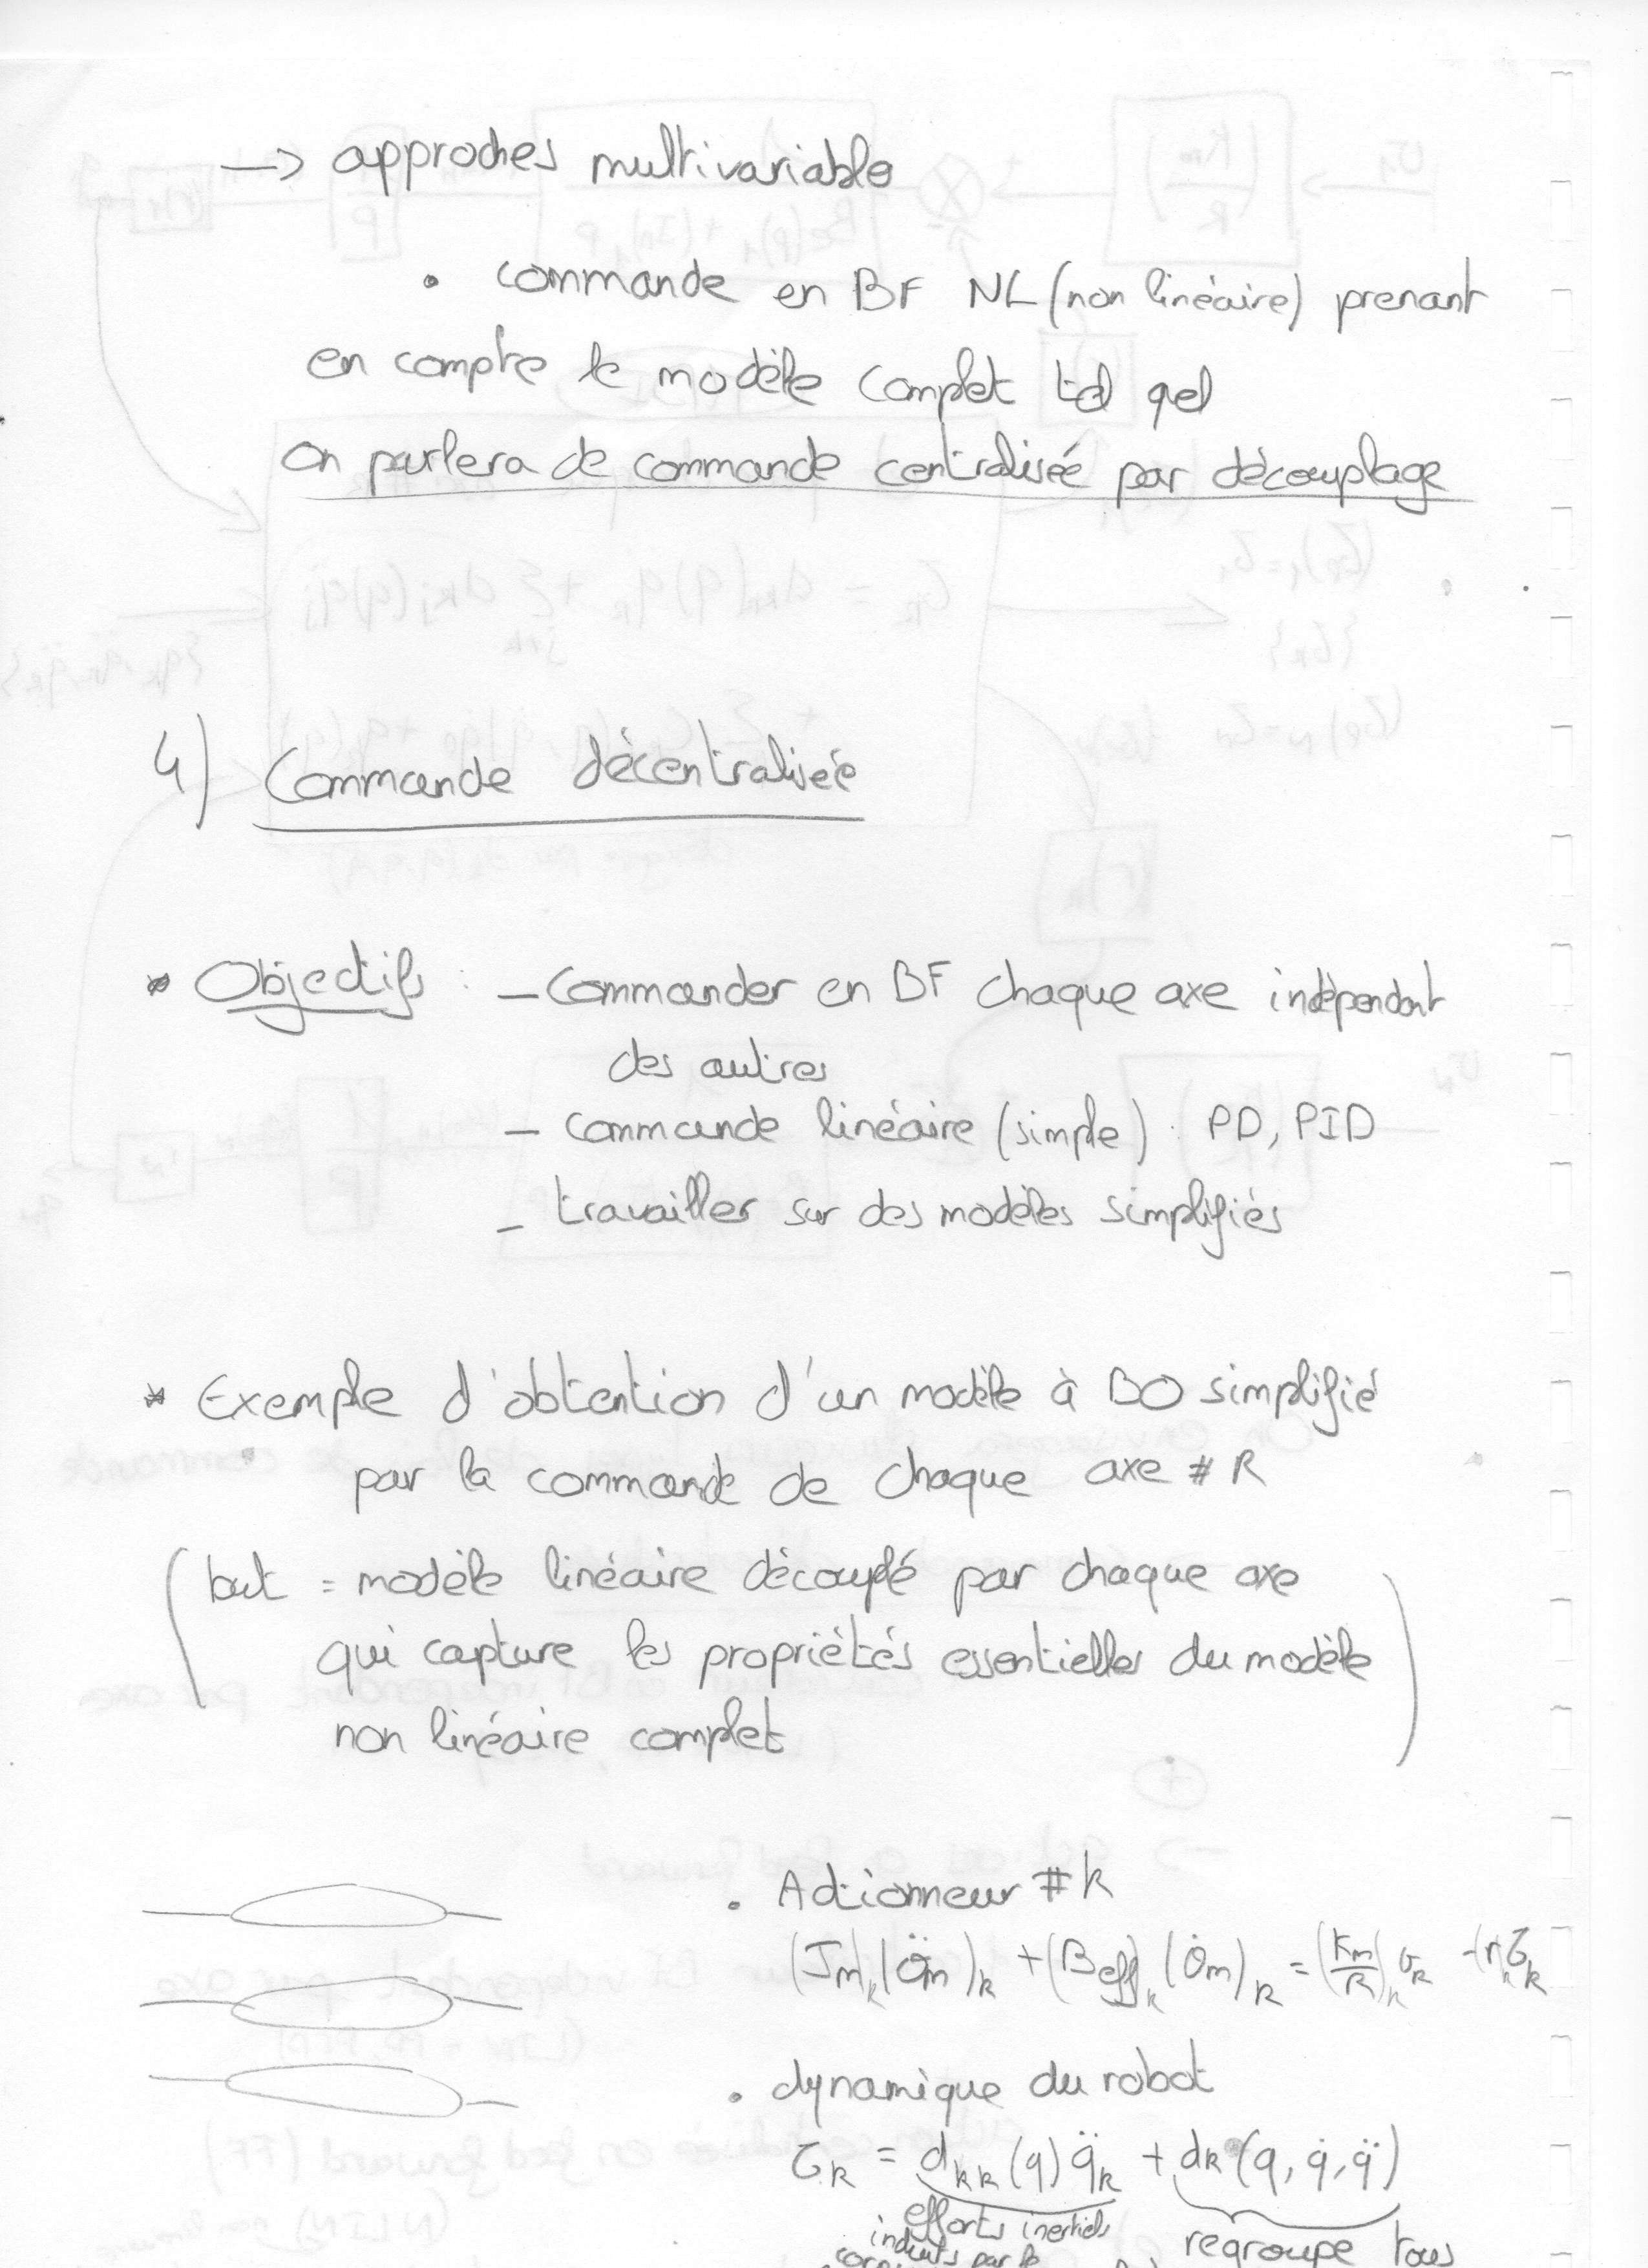 → approches multivariable
• commande en BF NL (non linéaire) prenant
en compte le modèle complet tel qel
On parlera de commande centralisée par découplage
4) Commande décentralisée
* Objectifs : – Commander en BF chaque axe indépendant
des autres
– commande linéaire (simple) : PD, PID
– travailler sur des modèles simplifiés
* Exemple d'obtention d'un modèle à BO simplifié
par la commande de chaque axe # R
(but = modèle linéaire découplé par chaque axe
qui capture les propriétés essentielles du modèle
non linéaire complet)
• Actionneur #k
(Jm)k (θ̈m)k + (Beff)k (θ̇m)k = (Km/R)k vk - (r)k τk
• dynamique du robot
τk = dkk (q) q̈k + dk (q, q̇, q̈)
efforts inertiels
induits par le
regroupe tous